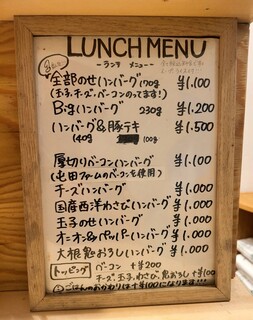 LUNCH MENU
ーランチ メニューー
全部のせハンバーグ 170g ¥1.100
(玉子、チーズ、ベーコンのってます!)
Bigハンバーグ 230g ¥1.200
ハンバーグ&豚テキ ¥1.500
140g 100g
厚切りベーコンハンバーグ ¥1.100
(屯田ファームのベーコンを使用)
チーズハンバーグ ¥1.000
国産西洋わさびハンバーグ ¥1.000
玉子のせハンバーグ ¥1.000
オニオン&ペッパーハンバーグ ¥1.000
大根鬼おろしハンバーグ ¥1.000
トッピング ベーコン +¥200
チーズ、玉子、わさび、鬼おろし +¥100
ごはんのおかわりは+¥100になります!!!